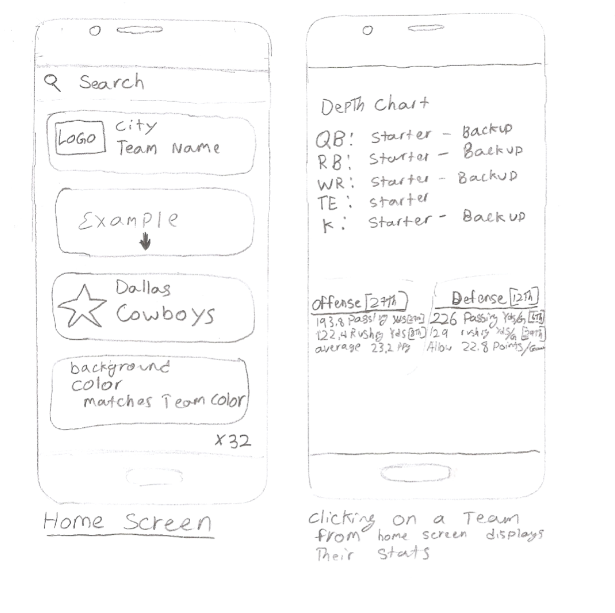 Search
LOGO
City
Team Name
Example
Dallas
Cowboys
background
color
matches Team color
x32
Home Screen
Depth Chart
QB: Starter - Backup
RB: Starter - Backup
WR: Starter - Backup
TE: Starter
K: Starter - Backup
Offense [27th]
193.8 Passing Yds
122.4 Rushing Yds [8th]
average 23.2 PPg
Defense [12th]
226 Passing Yds/G
129 rushing Yds/G
Allow 22.8 Points/Game
Clicking on a Team
from home screen displays
Their Stats